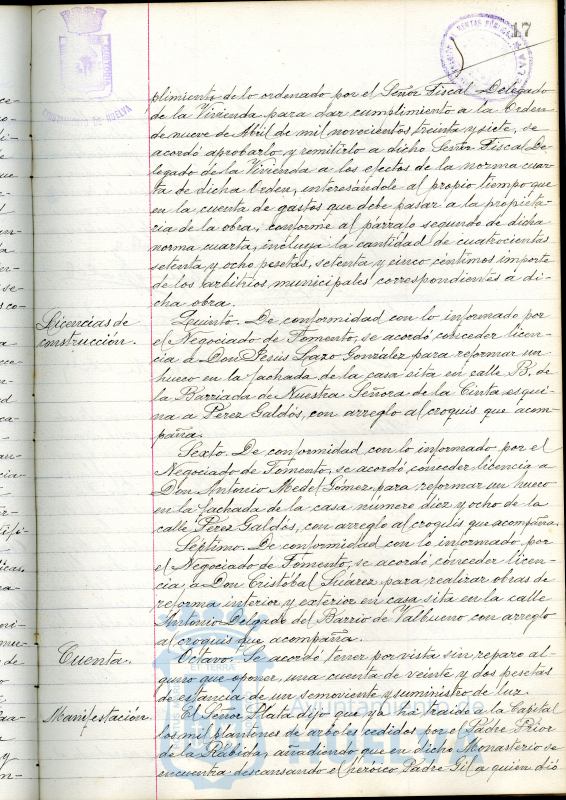 17
plimiento de lo ordenado por el Señor Fiscal Delegado
de la Vivienda para dar cumplimiento a la Orden
de nueve de Abril de mil novecientos treinta y siete, se
acordó aprobarlo y remitirlo a dicho Señor Fiscal De-
legado de la Vivienda a los efectos de la norma cuar-
ta de dicha Orden, interesándole al propio tiempo que
en la cuenta de gastos que debe pasar a la propieta-
ria de la obra, conforme al párrafo segundo de dicha
norma cuarta, incluya la cantidad de cuatrocientas
setenta y ocho pesetas, setenta y cinco céntimos importe
de los arbitrios municipales correspondientes a di-
cha obra.
Licencias de
construcción.
Quinto. De conformidad con lo informado por
el Negociado de Fomento, se acordó conceder licen-
cia a Don Jesús Lazo González para reformar un
hueco en la fachada de la casa sita en calle B. de
la Barriada de Nuestra Señora de la Cinta esqui-
na a Pérez Galdós, con arreglo al croquis que acom-
paña.
Sexto. De conformidad con lo informado por el
Negociado de Fomento, se acordó conceder licencia a
Don Antonio Medel Gómez para reformar un hueco
en la fachada de la casa número diez y ocho de la
calle Pérez Galdós, con arreglo al croquis que acompaña.
Séptimo. De conformidad con lo informado por
el Negociado de Fomento, se acordó conceder licen-
cia, a Don Cristóbal Suárez para realizar obras de
reforma interior y exterior en casa sita en la calle
Antonio Delgado del Barrio de Valbueno con arreglo
al croquis que acompaña.
Cuenta.
Octavo. Se acordó tener por vista sin reparo al-
guno que oponer, una cuenta de veinte y dos pesetas
de estancia de un semoviente y suministro de luz.
Manifestación.
El Señor Plata dijo que ya ha traído a la Capital
los mil plantines de árboles cedidos por el Padre Prior
de la Rábida, añadiendo que en dicho Monasterio se
encuentra descansando el heróico Padre Gil a quién dió
Ayuntamiento de
HUELVA